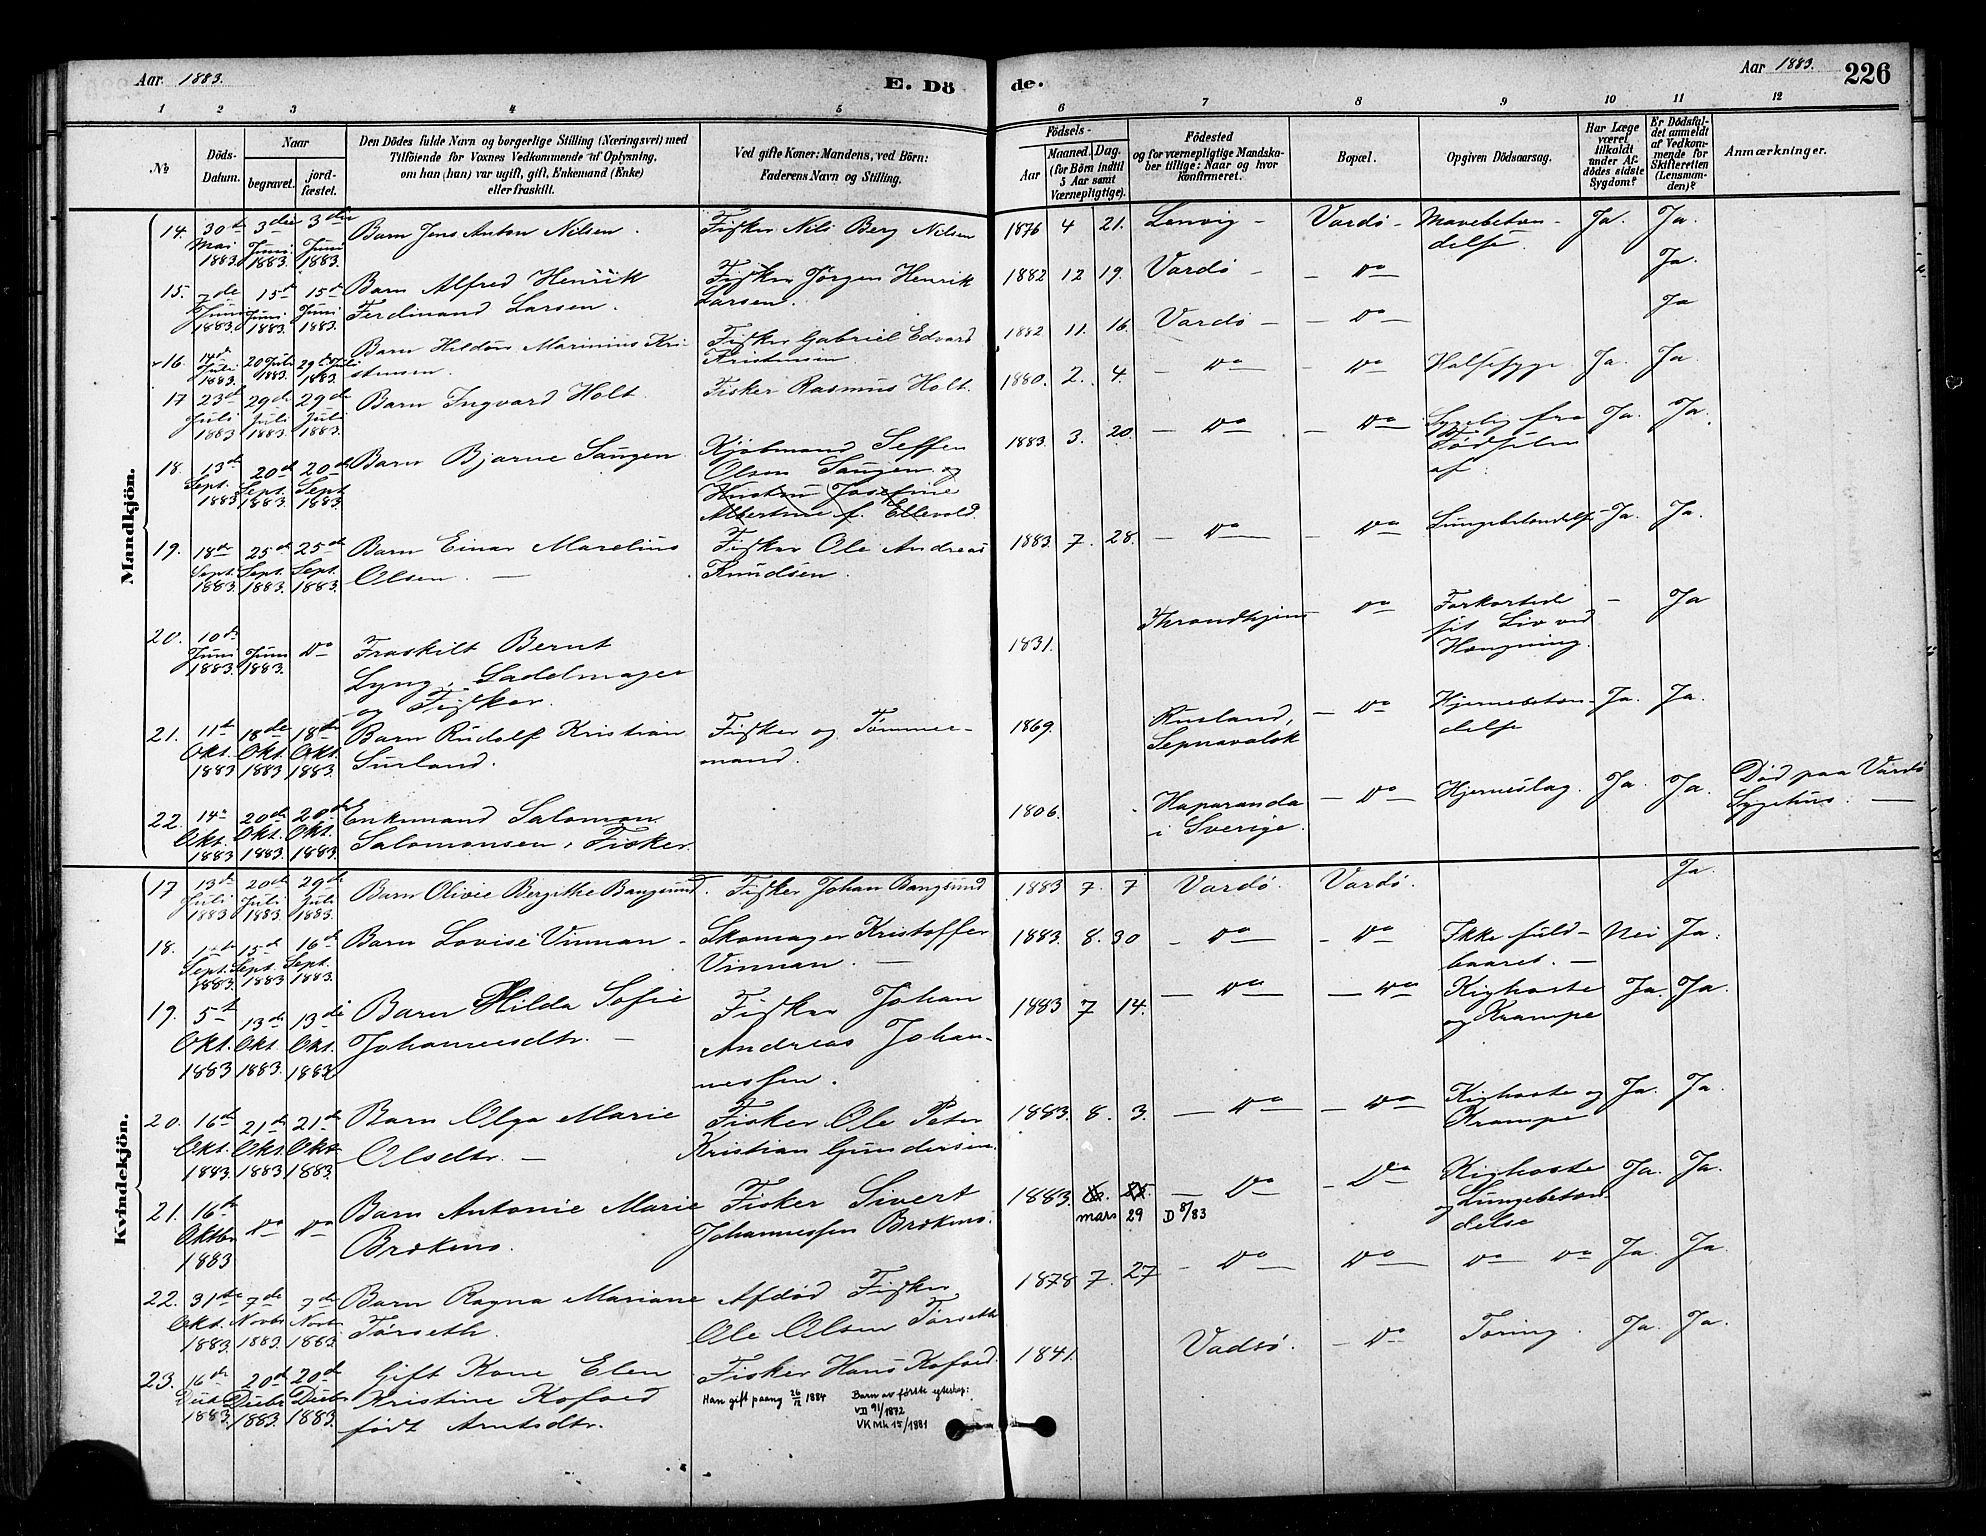 Aar 1883.
E. Dö
de.
Aar 1883.
226
1 2 3 4 5 6 7 8 9 10 11 12
No
Döds-
Datum.
Naar
begravet.
jord-
fæstet.
Den Dödes fulde Navn og borgerlige Stilling (Næringsvei) med
Tilföiende for Voxnes Vedkommende af Oplysning,
om han (hun) var ugift, gift, Enkemand (Enke)
eller fraskilt.
Ved gifte Koner: Mandens, ved Börn:
Faderens Navn og Stilling.
Födsels-
Aar
Maaned. Dag.
(for Börn indtil
5 Aar samt
Værnepligtige).
Födested
og for værnepligtige Mandska-
ber tillige: Naar og hvor
konfirmeret.
Bopæl.
Opgiven Dödsaarsag.
Har Læge
været
tilkaldt
under Af-
dödes sidste
Sygdom?
Er Dödsfal-
det anmeldt
af Vedkom-
mende for
Skifteretten
(Lensman-
den)?
Anmærkninger.
Mandkjön.
14. 30te Mai 1883. 3die Juni 1883. 3die Juni 1883. Barn Jens Anton Nilsen. Fisker Nils Berg Nilsen 1876 4 21. Lenvig - Vardö - Mavebetæn-
delse. Ja. Ja.
15. 7de Juni 1883. 15de Juni 1883. 15de Juni 1883. Barn Alfred Henrik
Ferdinand Larsen. Fisker Jörgen Henrik
Larsen. 1882 12 19. Vardö - - Do Ja.
16. 14de Juli 1883. 20 Juli 1883. 29de Juli 1883. Barn Hildor Marinius Kri-
stensen. Fisker Gabriel Edvard
Kristensen 1882 11. 16. Vardö - - Do Ja
17 23de Juli 1883 29de Juli 1883. 29de Juli 1883. Barn Ingvard Holt. Fisker Rasmus Holt. 1880. 2. 4. - Do - Do Halssyge Ja. Ja.
18. 13de Sept. 1883 20de Sept. 1883. 20de Sept 1883. Barn Bjarne Sangen. Kjöbmand Seffen
Olsen Sangen og
Hustru Josefine
Albertine f. Ellevold. 1883. 3. 20. - Do - Do Sygelig fra
Födselen
af. Ja. Ja.
19. 18de Sept. 1883 25de Sept. 1883. 25de Sept. 1883. Barn Einar Marelius
Olsen. - Fisker Ole Andreas
Knudsen. 1883. 7. 28. - Do - Do Lungebetændelse Ja. Ja.
20. 10de Juni 1883. Juni 1883. Do Fraskilt Bernt
Lyng, Sadelmager
og Fisker. 1831. Throndhjem - Do Forkortede
sit Liv ved
Hængning. - Ja
21. 11te Okt. 1883 18de Okt. 1883 18de Okt. 1883 Barn Rudolf Kristian
Surland. Fisker og Tömmer-
mand. 1869. Rusland,
Sepnavalok - Do Hjernebetæn-
delse Ja. Ja.
22. 14de Okt. 1883 20de Okt. 1883. 20de Okt. 1883. Enkemand Salomon
Salomonsen, Fisker. 1806. Haparanda
i Sverige. - Do Hjerneslag. Ja. Ja. Död paa Vardö
Sygehus. -
Kvindekjön.
17 13de Juli 1883 20de Juli 1883. 29de Juli 1883. Barn Olivie Bergithe Bangsund. Fisker Johan Bangsund 1883 7. 7 Vardö. Vardö. Ja.
18. Sept. 1883. 15de Sept. 1883 16de Sept. 1883. Barn Lovise Vinnan - Skomager Kristoffer
Vinnan. - 1883. 8. 30 - Do - Do Ikke fuld-
baaret. - Nei Ja.
19. 5te Okt. 1883 13de Okt. 1883. 13de Okt. 1883 Barn Hilda Sofie
Johannesdtr. - Fisker Johan
Andreas Johan-
nessen. 1883 7 14. - Do - Do Kighoste
og Krampe Ja. Ja.
20. 16de Okt. 1883 21de Okt. 1883 21de Okt 1883. Barn Olga Marie
Olsdtr. - Fisker Ole Peter
Kristian Gundersen. 1883. 8. 3. - Do - Do Kighoste og
Krampe Ja. Ja.
21. 16de Oktbr 1883 Do Do Barn Antonie Marie
Brækmo. Fisker Sivert
Johannessen Brækmo. 1883. mars 29 - Do D 8/83 - Do Kighoste
og Lungebetæn
delse Ja. Ja.
22. 31te Okt. 1883 7de Novbr 1883 7de Novbr 1883. Barn Ragna Mariane
Törseth. Afdöd Fisker
Ole Olsen Törseth 1878. 7. 27 - Do Do Do Do Ja. Ja.
23. 16de Decbr 1883. 20de Decbr 1883. 20de Decbr 1883. Gift Kone Elen
Kristine Kofoed
födt Arntsdtr. Fisker Hans Kofoed. 1841. Vadsö. - Do Tæring. Ja. Ja.
Han gift paany 26/12 1884
Barn av første ekteskap:
VD 91/1872
VK Mk 15/1881